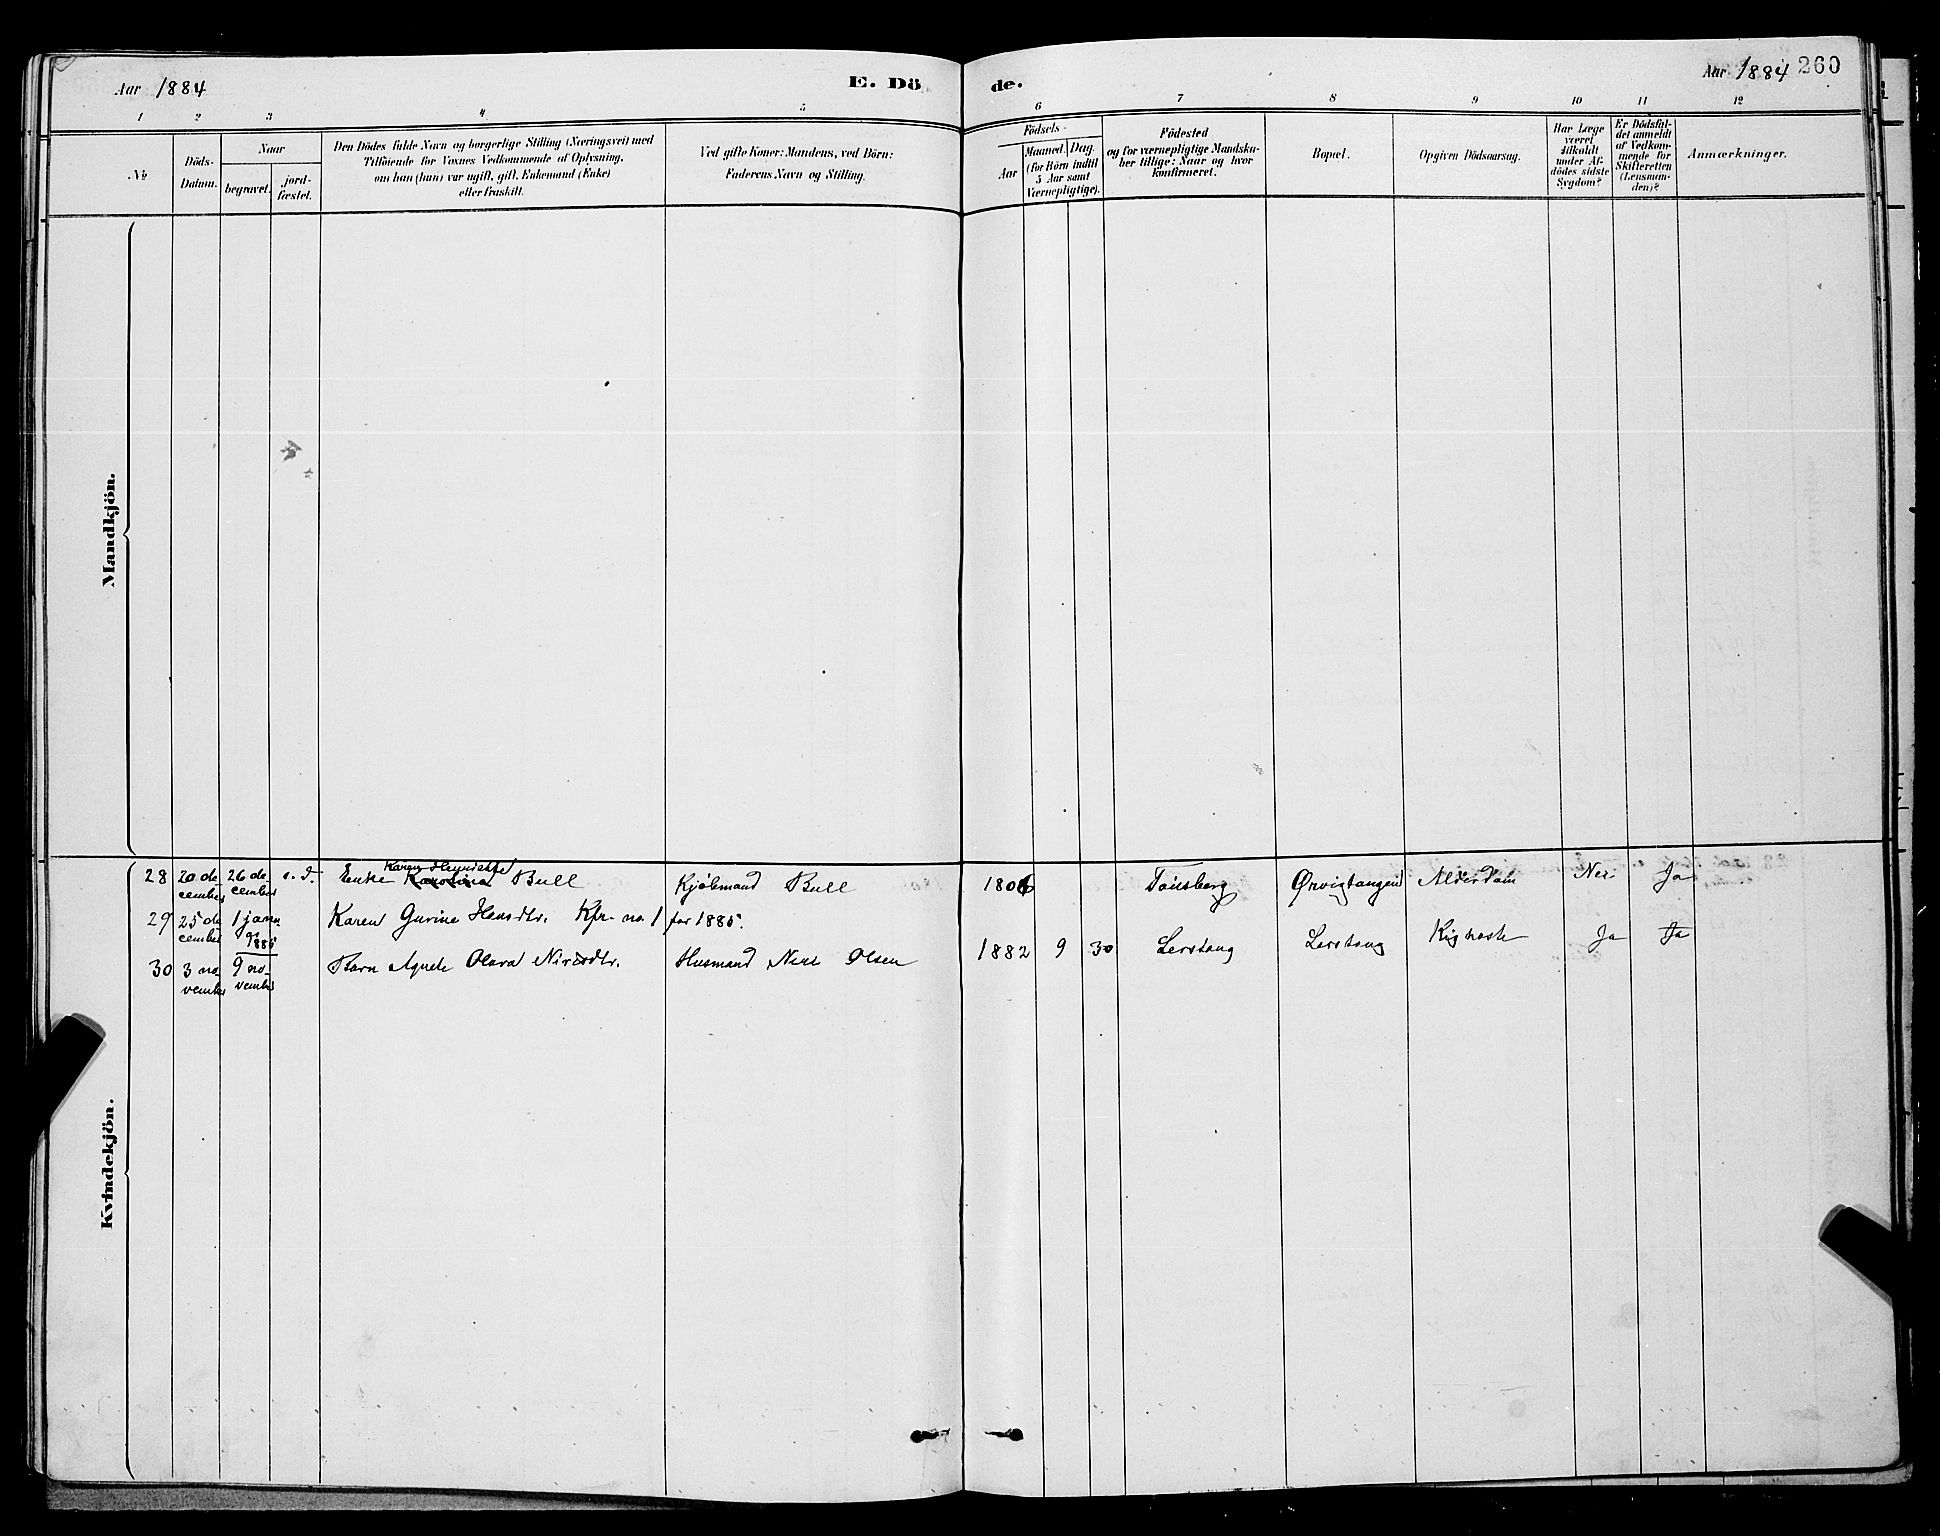 Aar 1884
E. Dö
de.
Aar 1884 260
1 2 3 4 5 6 7 8 9 10 11 12
No
Döds-
Datum.
Naar
begravet.
jord-
fæstet.
Den Dödes fulde Navn og borgerlige Stilling (Næringsvei) med
Tilföiende for Voxnes Vedkommende af Oplysning,
om han (hun) var ugift, gift, Enkemand (Enke)
eller fraskilt.
Ved gifte Koner: Mandens, ved Börn:
Faderens Navn og Stilling.
Födsels-
Aar
Maaned. Dag.
(for Börn indtil
5 Aar samt
Værnepligtige).
Födested
og for værnepligtige Mandska-
ber tillige: Naar og hvor
konfirmeret.
Bopæl.
Opgiven Dödsaarsag.
Har Læge
været
tilkaldt
under Af-
dödes sidste
Sygdom?
Er Dödsfal-
det anmeldt
af Vedkom-
mende for
Skifteretten
(Lensman-
den)?
Anmærkninger.
Mandkjön.
Kvindekjön.
Karen Henriette
28 20 de- 26 de- s. d. Enke Karoline Bull Kjöbmand Bull 1806 Tönsberg Ørvigtangen Alderdom Nei Ja
cember cember
29 25 de- 1 janu- Karen Gurine Hansdtr. Kfr. no. 1 for 1885.
cember 1885
30 3 no- 9 no- Barn Agnete Olava Nilsdtr. Husmand Nils Olsen 1882 9 30 Lerstang Lerstang Kighoste Ja Ja
vember vember